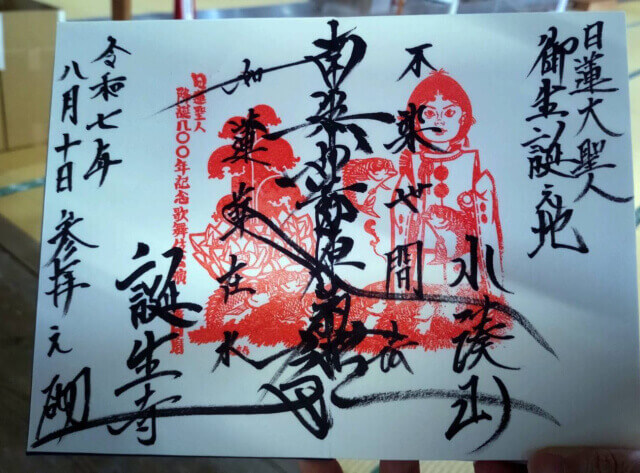 日蓮大聖人
御生誕之地
小湊山
不染世間法
南無妙法蓮華経
如蓮華在水
誕生寺
日蓮聖人
降誕八〇〇年記念歌舞伎公演
令和七年
八月十日 参拝之砌